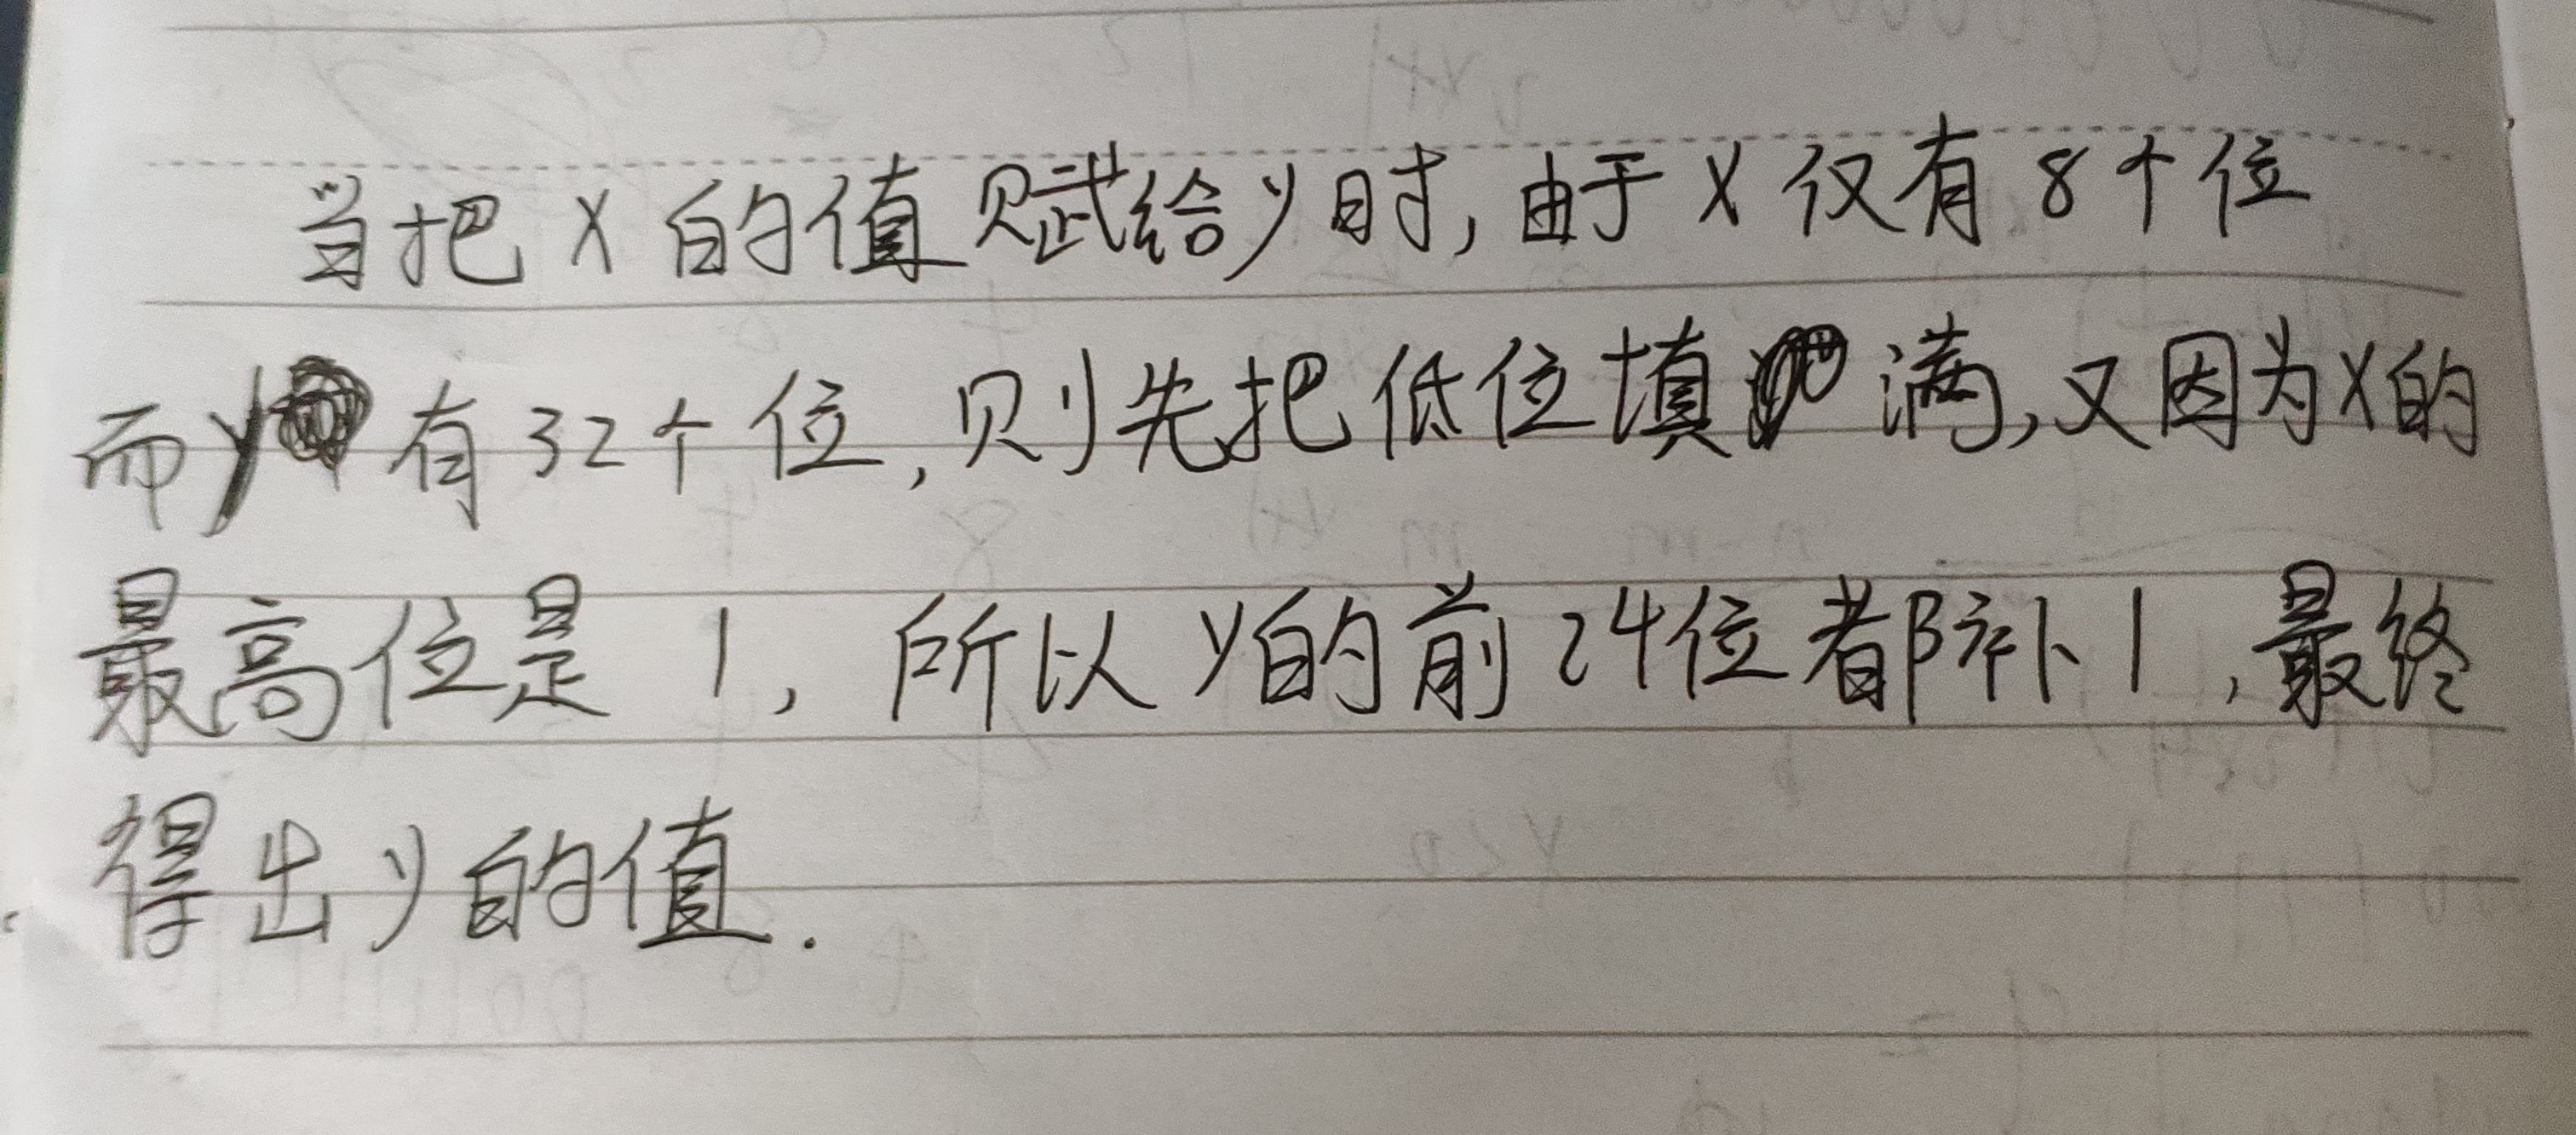 当把 x 的值赋给y时,由于 x 仅有 8个位
而y有32个位,则先把低位填满,又因为x的
最高位是 1, 所以 y的前24位都补1,最终
得出y的值.